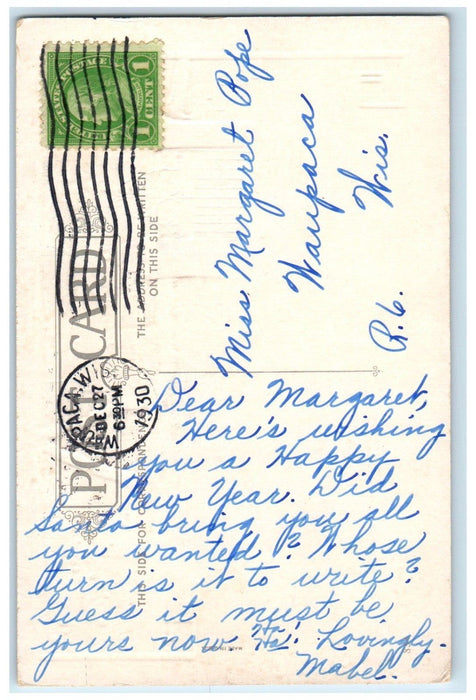 U.S. POSTAGE
1 CENT 1
WAUPACA, WIS.
DEC 27
6 30 PM
1930
POST CARD
THE ADDRESS TO BE WRITTEN
ON THIS SIDE
THIS SIDE FOR CORRESPONDENCE
Miss. Margaret Pope
Waupaca
Wis.
R. 6.
Dear Margaret,
Here's wishing
you a Happy
New Year. Did
Santa bring you all
you wanted? Whose
turn is it to write?
Guess it must be
yours now Ha! Ha! Lovingly.
Mabel.